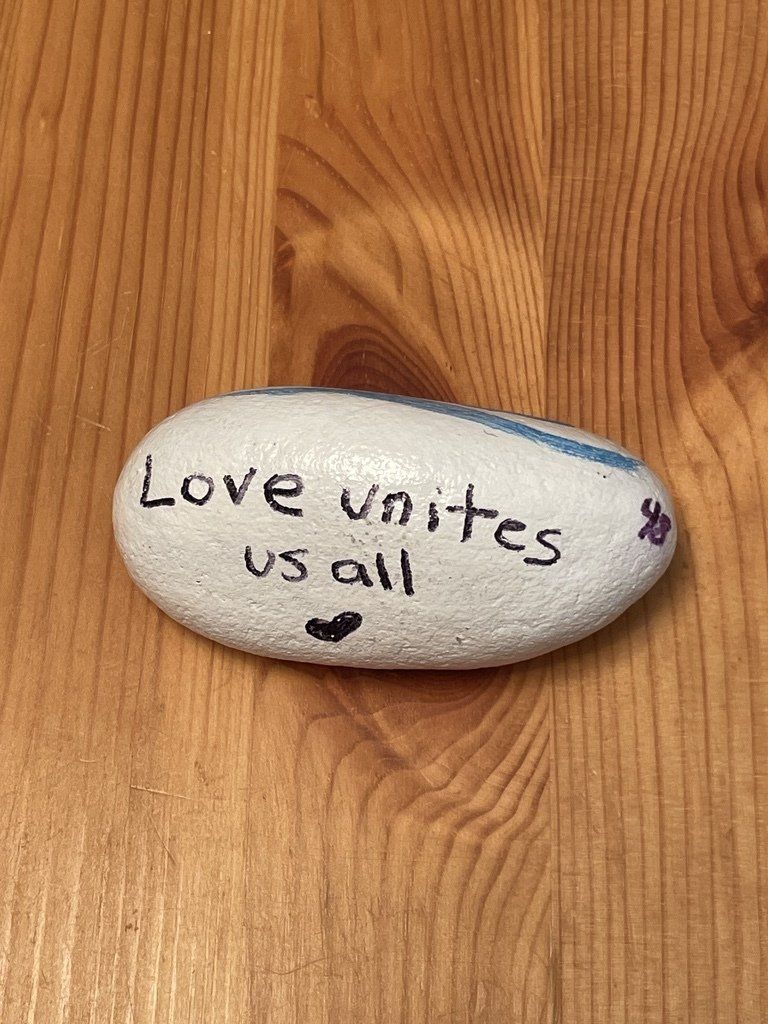 Love unites
us all